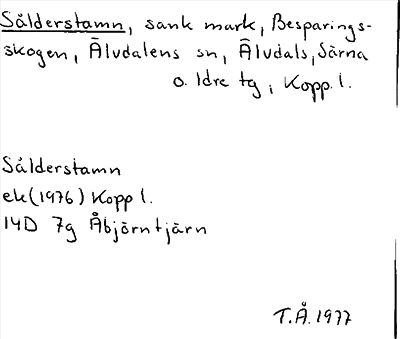 Sålderstamn, sank mark, Besparings-
skogen, Älvdalens sn, Älvdals, Särna
o. Idre tg, Kopp. l.
Sålderstamn
ek (1976) Kopp l.
14D 7g Åbjörntjärn
T.Å. 1977